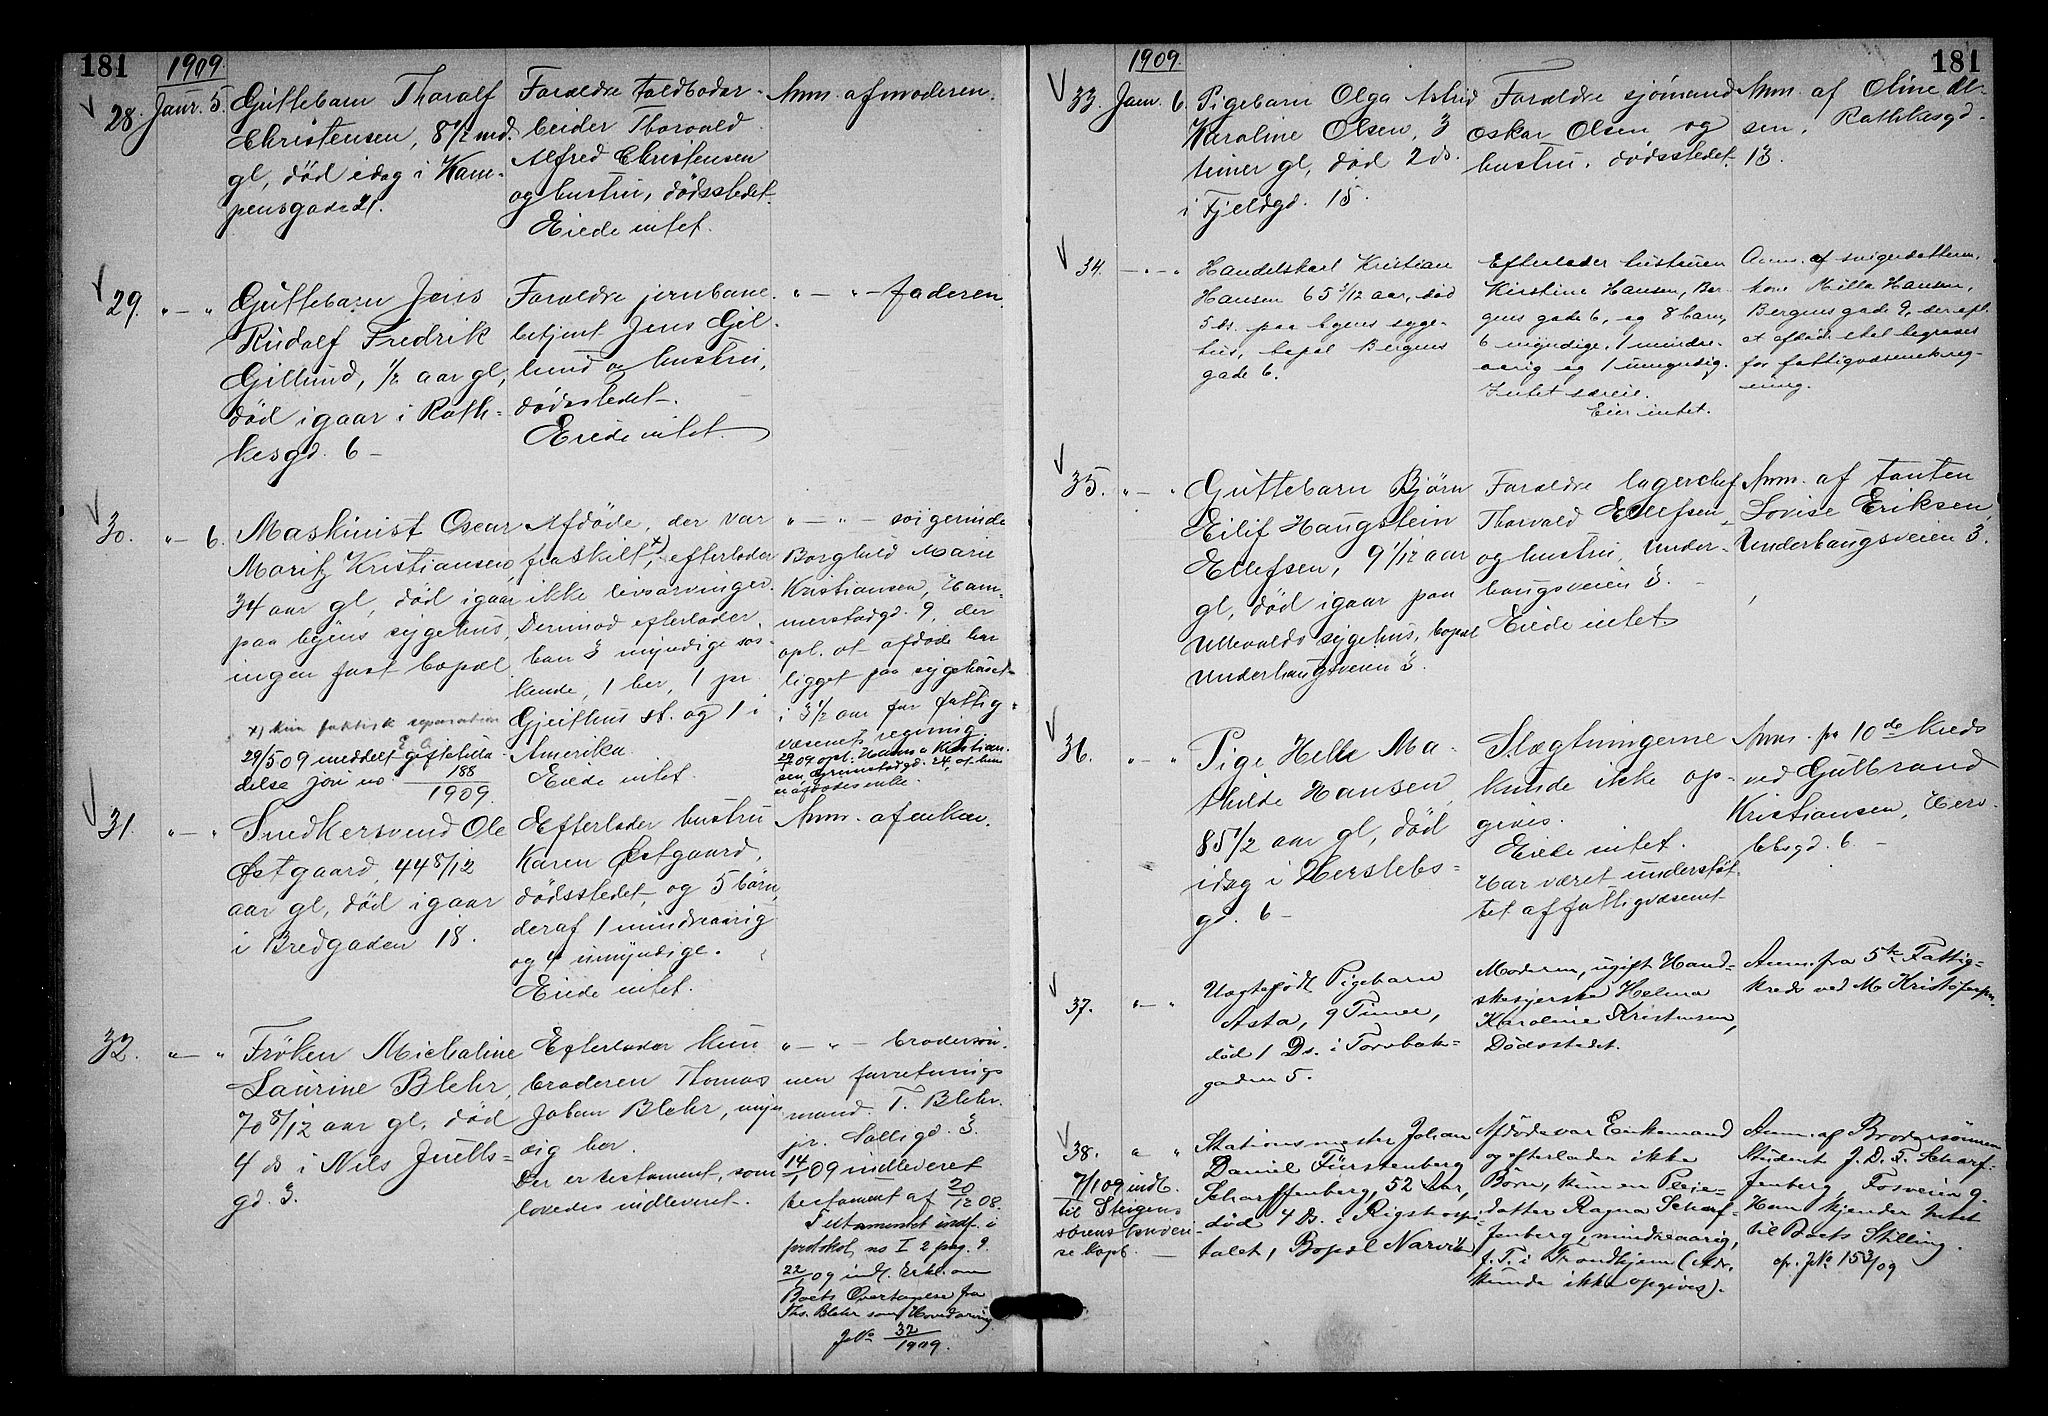 181
1909.
28. Janr. 5.
Guttebarn Tharalf
Christensen, 8 1/2 md.
gl, död idag i Kam-
pensgade 21.
Forældre Toldbodar-
beider Thorvald
Alfred Christensen
og hustru, dödsstedet.
Eiede intet.
Anm. af moderen.
29. " — "
Guttebarn Jens
Rudolf Fredrik
Gillund, 1/2 aar gl,
död igaar i Rath-
kesgd. 6 —
Forældre jernbane-
betjent Jens Gil-
lund og hustru,
dödsstedet.
Eiede intet.
" — " — faderen.
30. " — 6.
Maskinist Oscar
Moritz Kristiansen,
34 aar gl, död igaar
paa byens sygehus,
ingen fast bopæl
x) kun faktisk separation
29/5 09 meddelt giftetilla-
delse jour no 188/1909.
Afdöde, der var
fraskilt x), efterlader
ikke livsarvinger.
Derimod efterlader
han 3 myndige sös-
kende, 1 her, 1 pr.
Gjeithus st. og 1 i
Amerika.
Eiede intet.
" — " — svigerinde
Borghild Marie
Kristiansen, Ham-
merstadgd. 9, der
opl. at afdöde har
ligget paa sygehuset
i 3 1/2 aar for fattig-
væsenets regning.
09 opl. Hanna Kristian-
sen, 24, at hun
er afdödes enke.
31. " — "
Snedkersvend Ole
Östgaard, 44 8/12
aar gl, död igaar
i Bredgaden 18.
Efterlader hustru
Karen Östgaard,
dödsstedet, og 5 börn,
deraf 1 mindreaarig
og 4 umyndige.
Eiede intet.
Anm. af enken.
32. " — "
Fröken Michaline
Laurine Blehr,
70 8/12 aar gl, död
4 ds i Nils Juells-
gd. 3.
Efterlader kun
broderen Thomas
Johan Blehr, myn-
dig her.
Der er testament, som
lovedes indleveret.
" — " — brodersön-
nen forretnings
mand. T. Blehr
jr. Solligd. 3.
14/1 09 indleveret
testament af 20/12 08.
Testamentet indf. i
protokol no I 2 pag. 9.
22/1 09 indl. Erkl. om
Boets Overtagelse fra
Ths. Blehr som Hovedarving
J No 32/1909.
181
1909.
33. Jam. 6.
Pigebarn Olga Astrid
Karoline Olsen, 3
timer gl, död 2 ds.
i Fjeldgd. 15.
Forældre sjömand
Oskar Olsen og
hustru, dödsstedet.
Anm. af Oline Ol-
sen, Rathkesgd.
13.
34. — " — "
Handelskarl Kristian
Hansen 65 3/12 aar, död
5 ds. paa byens syge-
hus, bopæl Bergens
gade 6.
Efterlader hustruen
Kirstine Hansen, Ber-
gens gade 6, og 8 barn,
6 myndige, 1 mindre-
aarig og 1 umyndig.
Intet særeie.
Eier intet.
Anm. af svigerdatteren,
kone Milla Hansen,
Bergens gade 9, der opl.
at afdöde skal begraves
for fattigvæsenets reg-
ning.
35. " — "
Guttebarn Björn
Eilif Haugstein
Ellefsen, 9 1/12 aar
gl, död igaar paa
Ullevaals sygehus, bopæl
Underhaugsveien 3.
Forældre lagerchef
Thorvald Ellefsen
og hustru, Under-
haugsveien 3.
Eiede intet
Anm. af tanten
Lovise Eriksen,
Underhaugsveien 3.
36. " — "
Pige Helle Ma-
thilde Hansen,
85 1/2 aar gl, död
idag i Herslebs-
gd. 6 —
Slægtningerne
kunde ikke op-
gives.
Eiede intet.
Har været understöt-
tet af fattigvæsenet
Anm. fra 10de kreds
ved Gulbrand
Kristiansen, Hers-
lebsgd. 6. —
37. " — "
Uægtefödt Pigebarn
Asta, 9 Timer,
död 1 Ds. i Torvbak-
gaden 5.
Moderen, ugift Hand-
skesyerske Helma
Karoline Kristensen,
Dödsstedet.
Anm. fra 5te Fattig-
kreds ved M. Kristofersen.
38. " "
7/1 09 indb.
til Steigens
sorenskriveri
Stationsmester Johan
Daniel Fürstenberg
Scharffenberg, 52 Aar,
död 4 Ds. i Rigshospi-
talet, Bopæl Narvik
Afdöde var Enkemand
og efterlader ikke
Börn, kun en Pleie-
datter Ragna Scharf-
fenberg, mindreaarig,
f. T. i Trondhjem (Adr.
kunde ikke opgives).
Anm. af Brodersönnen
Student J. D. F. Scharf-
fenberg, Fosveien 9.
Han kjender intet
til Boets Stilling.
cfr. J No 153/09